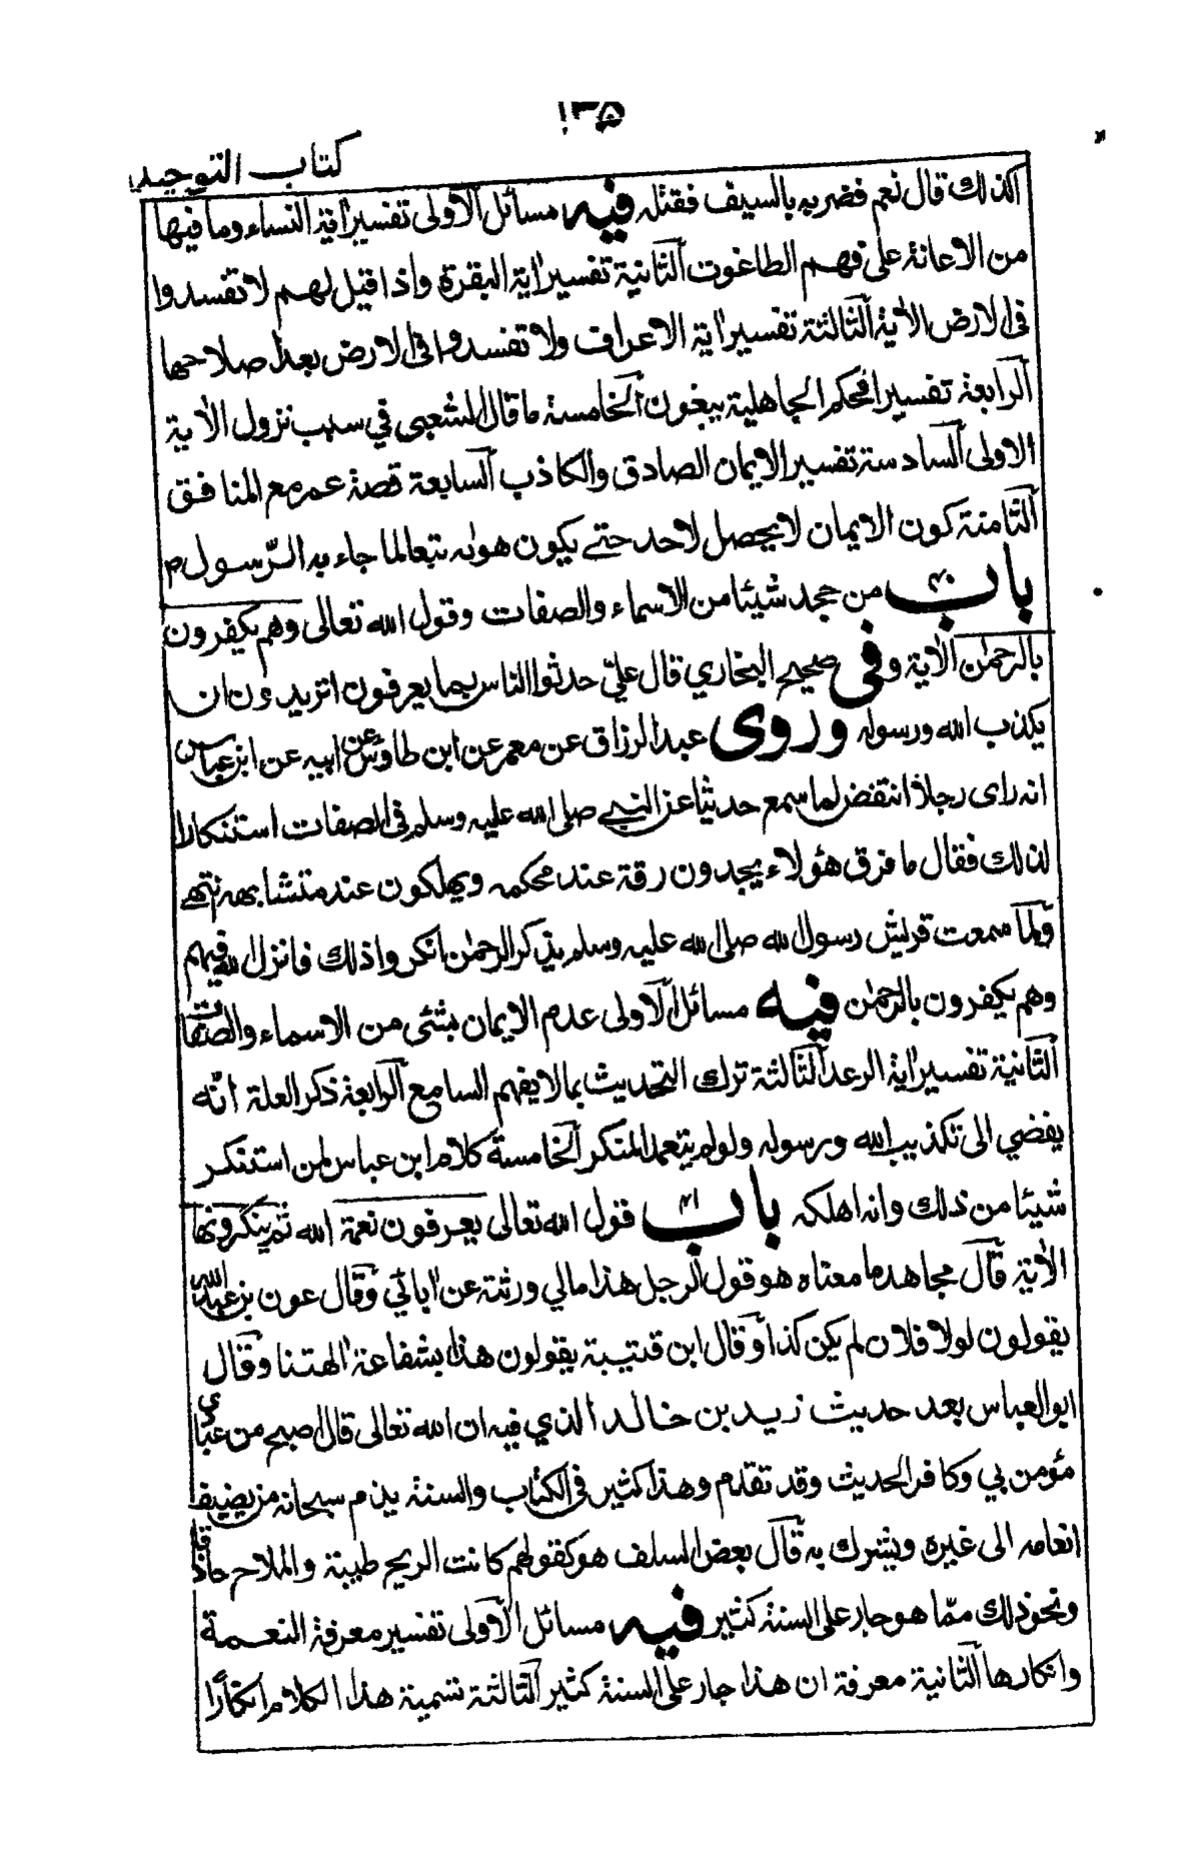 ١٣٥
كتاب التوحيد
اكذلك قال نعم فضربه بالسيف فقتله فيه مسائل الاولى تفسير اٰية النساء وما فيها
من الاعانة على فهم الطاغوت الثانية تفسير اٰية البقرة واذا قيل لهم لا تفسدوا
فى الارض الاٰية الثالثة تفسير اٰية الاعراف ولا تفسدوا فى الارض بعد اصلاحها
الرابعة تفسير افحكم الجاهلية يبغون الخامسة ما قال الشعبي في سبب نزول الاٰية
الاولى السادسة تفسير الايمان الصادق والكاذب السابعة قصة عمر مع المنافق
الثامنة كون الايمان لا يحصل لاحد حتے يكون هواه تبعا لما جاء به الرّسول م
باب ٤٠ من جحد شيئا من الاسماء والصفات وقول الله تعالى وهم يكفرون
بالرحمٰن الاٰية وفى صحيح البخاري قال عليّ حدثوا الناس بما يعرفون اتريدون ان
يكذب الله ورسوله وروى عبد الرزاق عن معمر عن ابن طاوس عن ابيه عن ابن عباس
انه راى رجلا انتفض لما سمع حديثا عن النبے صلى الله عليه وسلم فى الصفات استنكارا
لذلك فقال ما فرق هؤلاء يجدون رقة عند محكمه ويهلكون عند متشابهه انتهے
ولما سمعت قريش رسول الله صلى الله عليه وسلم يذكر الرحمٰن انكروا ذلك فانزل الله فيهم
وهم يكفرون بالرحمٰن فيه مسائل الاولى عدم الايمان بشئى من الاسماء والصفات
الثانية تفسير اٰية الرعد الثالثة ترك التحديث بما لا يفهم السامع الرابعة ذكر العلة انّه
يفضي الى تكذيب الله ورسوله ولو لم يتعمد المنكر الخامسة كلام ابن عباس لمن استنكر
شيئا من ذلك وانه اهلكه باب ٤١ قول الله تعالى يعرفون نعمة الله ثم ينكرونها
الاٰية قال مجاهد ما معناه هو قول الرجل هذا مالي ورثته عن اٰبائي وقال عون بن عبد الله
يقولون لولا فلان لم يكن كذا وقال ابن قتيبة يقولون هذا بشفاعة اٰلهتنا وقال
ابو العباس بعد حديث زيد بن خالد الذي فيه ان الله تعالى قال اصبح من عبادي
مؤمن بي وكافر الحديث وقد تقدم وهذا كثير فى الكتاب والسنة يذم سبحانه من يضيف
انعامه الى غيره ويشرك به قال بعض السلف هو كقولهم كانت الريح طيبة والملاح حاذقا
ونحو ذلك ممّا هو جار على السنة كثير فيه مسائل الاولى تفسير معرفة النعمة
وانكارها الثانية معرفة ان هذا جار على السنة كثير الثالثة تسمية هذا الكلام انكارًا